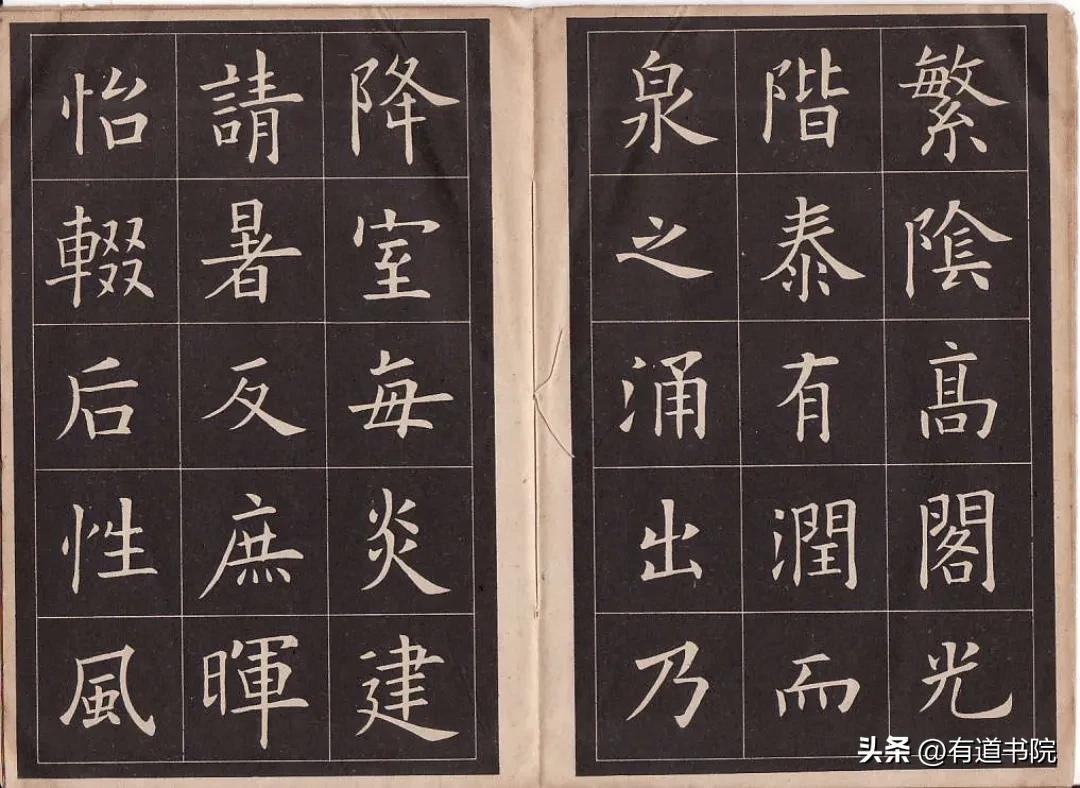 繁陰高閣光
階泰有潤而
泉之涌出乃
降室每炎建
請暑反庶暉
怡輟后性風
头条 @有道书院